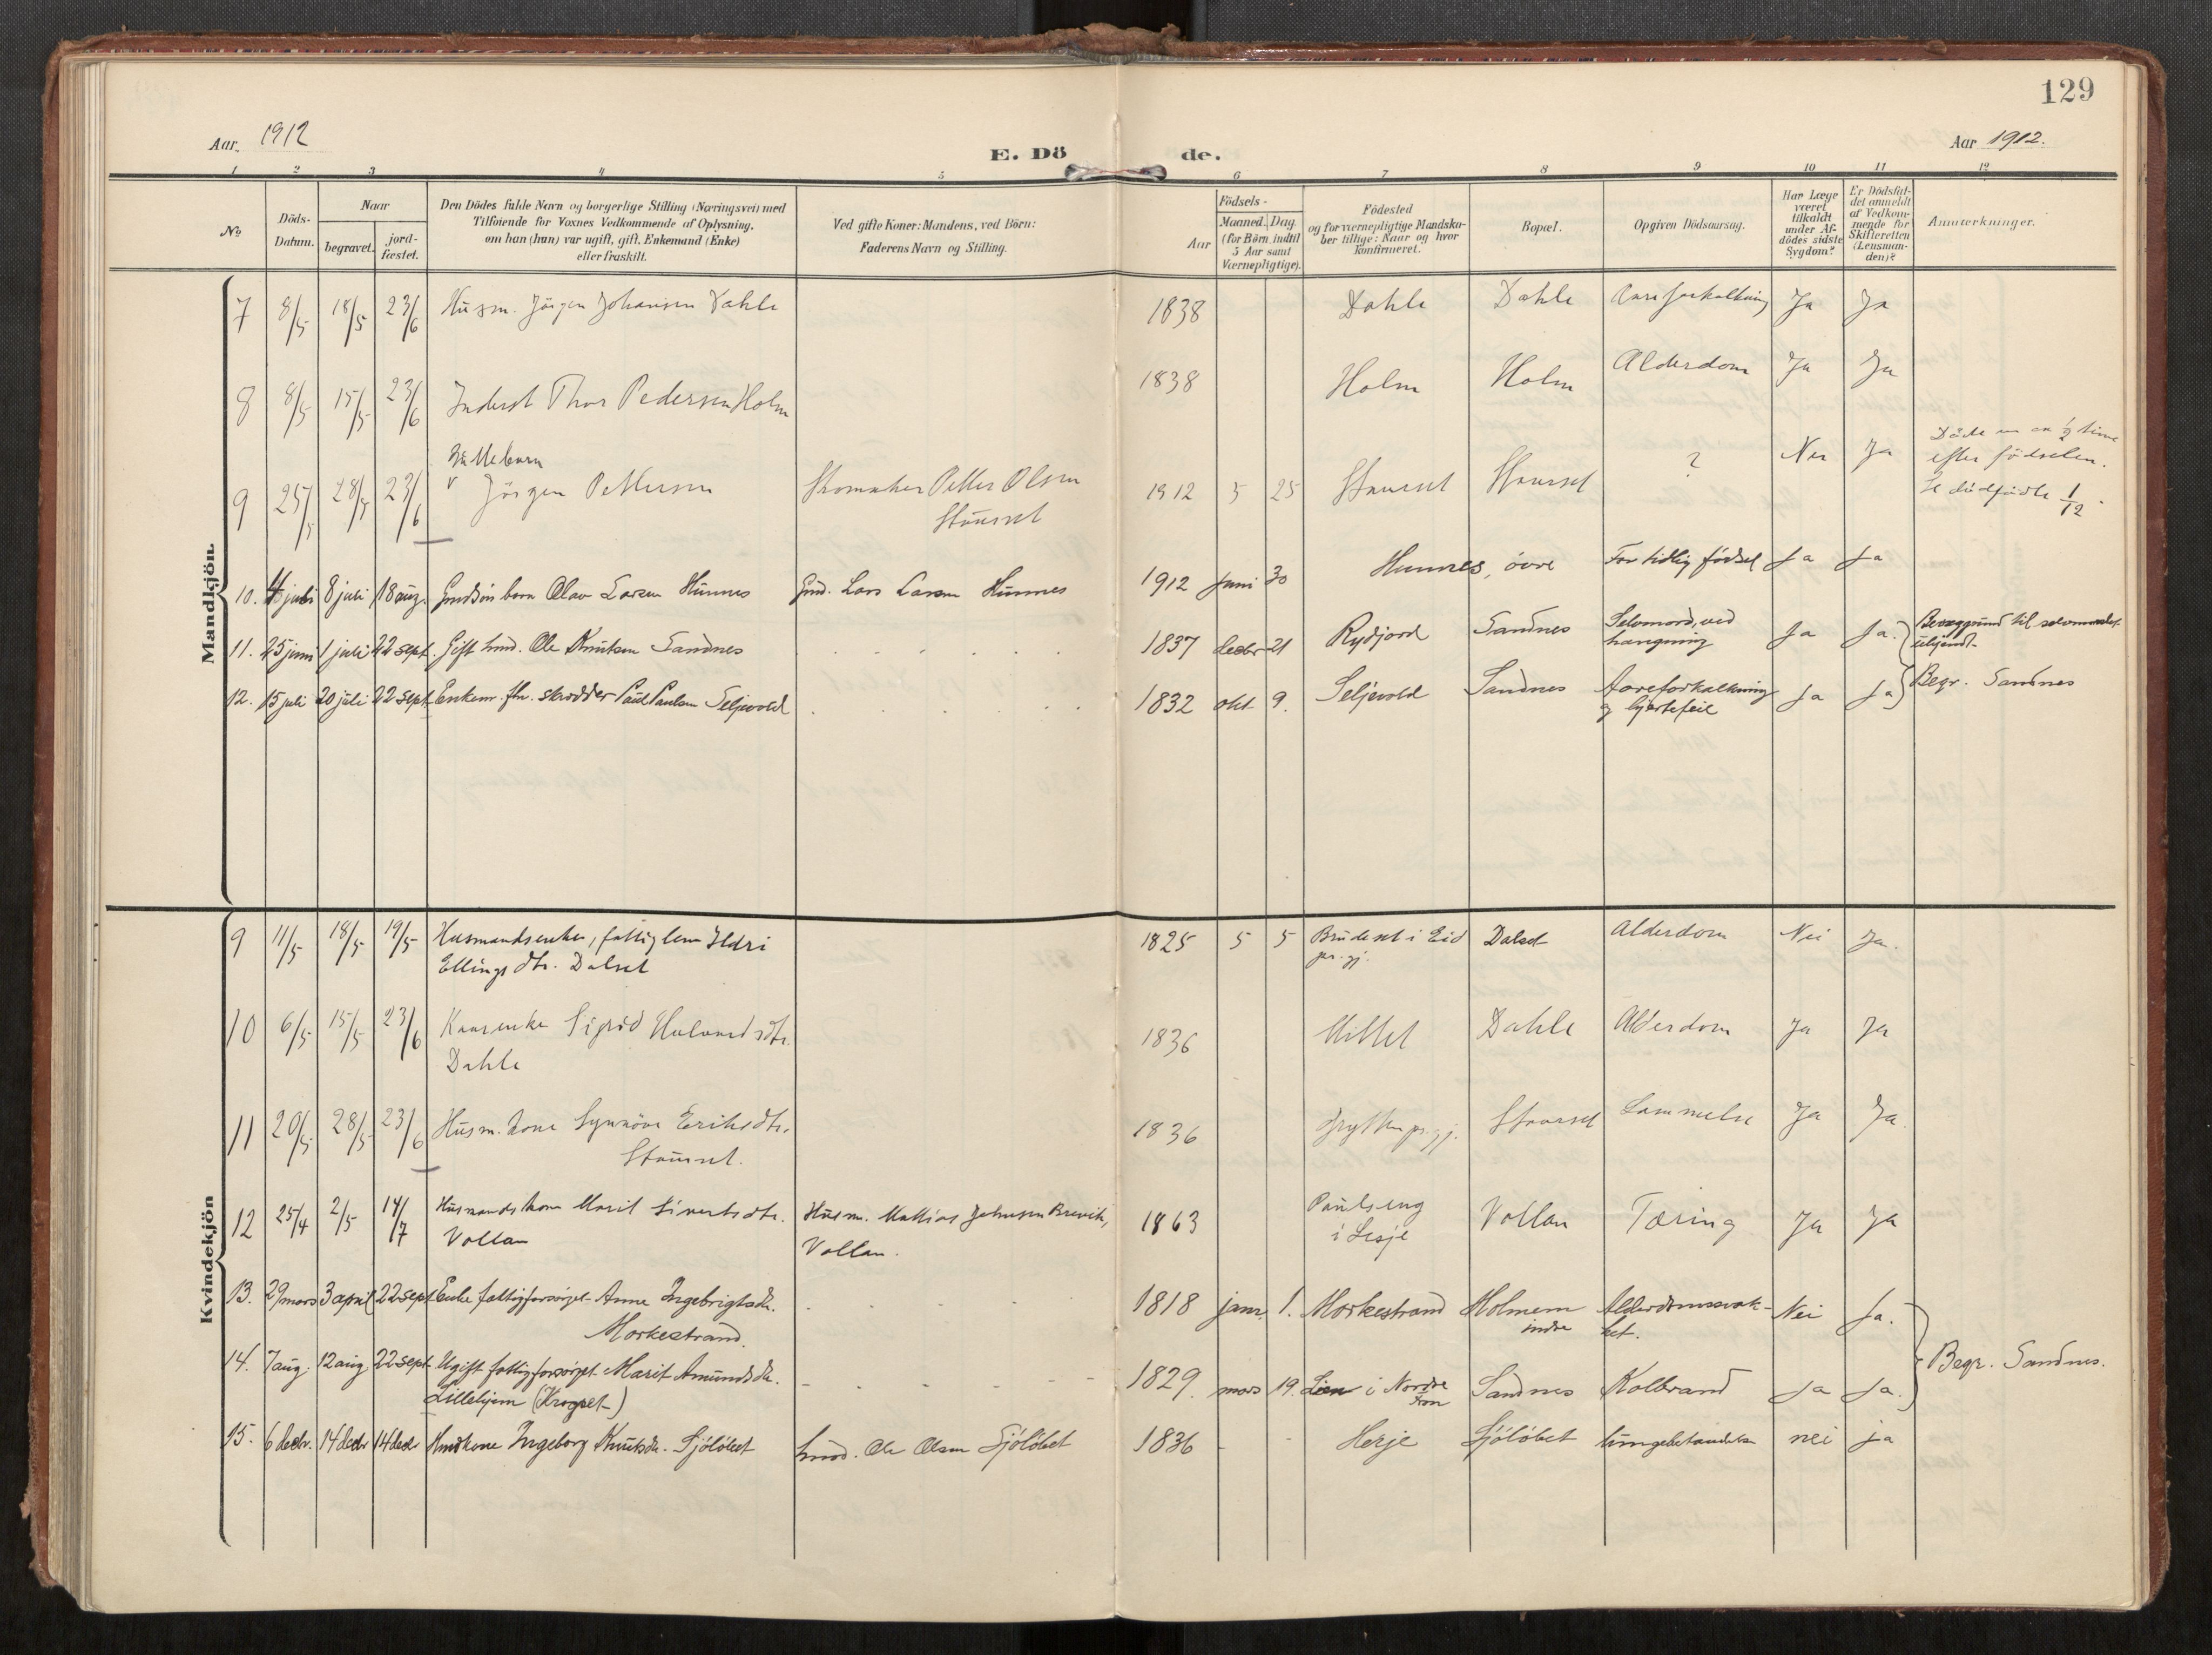 129
Aar. 1912
E. Dö
de.
Aar 1912.
1 2 3 4 5 6 7 8 9 10 11 12
No
Döds-
Datum.
Naar
begravet.
jord-
fæstet.
Den Dödes fulde Navn og borgerlige Stilling (Næringsvei) med
Tilföiende for Voxnes Vedkommende af Oplysning,
om han (hun) var ugift, gift, Enkemand (Enke)
eller fraskilt.
Ved gifte Koner: Mandens, ved Börn:
Faderens Navn og Stilling.
Födsels-
Aar
Maaned. Dag.
(for Börn indtil
3 Aar samt
Værnepligtige).
Födested
og for værnepligtige Mandska-
ber tillige: Naar og hvor
Konfirmeret.
Bopæl.
Opgiven Dödsaarsag.
Har Læge
været
tilkaldt
under Af-
dödes sidste
Sygdom?
Er Dödsfal-
det anmeldt
af Vedkom-
mende for
Skifteretten
(Lensman-
den)?
Anmærkninger.
Mandkjön.
7 8/5 18/5 23/6 Husm. Jörgen Johansen Dahle 1838 Dahle Dahle Aareforkalkning Ja Ja
8 8/5 15/5 23/6 Inderst Thor Pedersen Holm 1838 Holm Holm Alderdom Ja Ja
9 25/5 28/5 23/6 Jörgen Pettersen Skomaker Petter Olsen 1912 5 25 Staurset Staurset ? Nei Ja
Staurset
efter födselen.
Se dödfödte 1/12.
10. 4 juli 8 juli 18 aug. Gmdsin barn Olav Larsen Hunnes Gmd. Lars Larsen Hunnes 1912 juni 30 Hunnes, övre For tidlig födsel Ja Ja
11. 25 juni 1 juli 22 sept. Gift hmd. Ole Knutsen Sandnes 1837 decbr 21 Rydjord Sandnes Selvmord, ved
hængning Ja Ja. Bevæggrund til selvmordet
ukjendt.
12. 15 juli 20 juli 22 sept Enkem. fhv. skrædder Paul Paulsen Seljevold 1832 okt. 9. Seljevold Sandnes Aareforkalkning
og hjertefeil Ja Ja Begr. Sandnes
Kvindekjön
9 11/5 18/5 19/5 Husmandsenke, fattiglem Ildri
Ellingsdtr. Dalset 1825 5 5 Brudeset i Eid
pr. gj. Dalset Alderdom Nei Ja.
10 6/5 15/5 23/6 Kaarenke Sigrid Halvardsdtr.
Dahle 1836 Mittet Dahle Alderdom Ja Ja
11 20/5 28/5 23/6 Husm. kone Synnöve Eriksdtr.
Staurset. 1836 Grytten pr. gj. Staurset Lammelse Ja Ja.
12 25/4 2/5 14/7 Husmandskone Marit Sivertsdtr.
Vollan Husm. Mathias Johnsen Brevik,
Vollan. 1863 Paulseng
i Lesje Vollan Tæring Ja Ja
13. 29 mars 3 april 22 sept Enke fattigforsörget Anne Ingebrigtsdtr.
Morkestrand. 1818 janr. 1. Morkestrand Holmem
indre Alderdomssvak-
het. Nei Ja.
14. 7 aug. 12 aug 22 sept Ugift fattigforsörget Marit Amundsdtr.
Lillehjem (Krogset) 1829. mars 19. Lien i Nordre
Fron Sandnes Koldbrand Ja Ja. Begr. Sandnes.
15. 6 decbr. 14 decbr 14 decbr Hmdkone Ingeborg Knutsdtr. Sjölöbet hmd. Ole Olsen Sjölöbet 1836 - - Herje Sjölöbet lungebetændelse nei ja